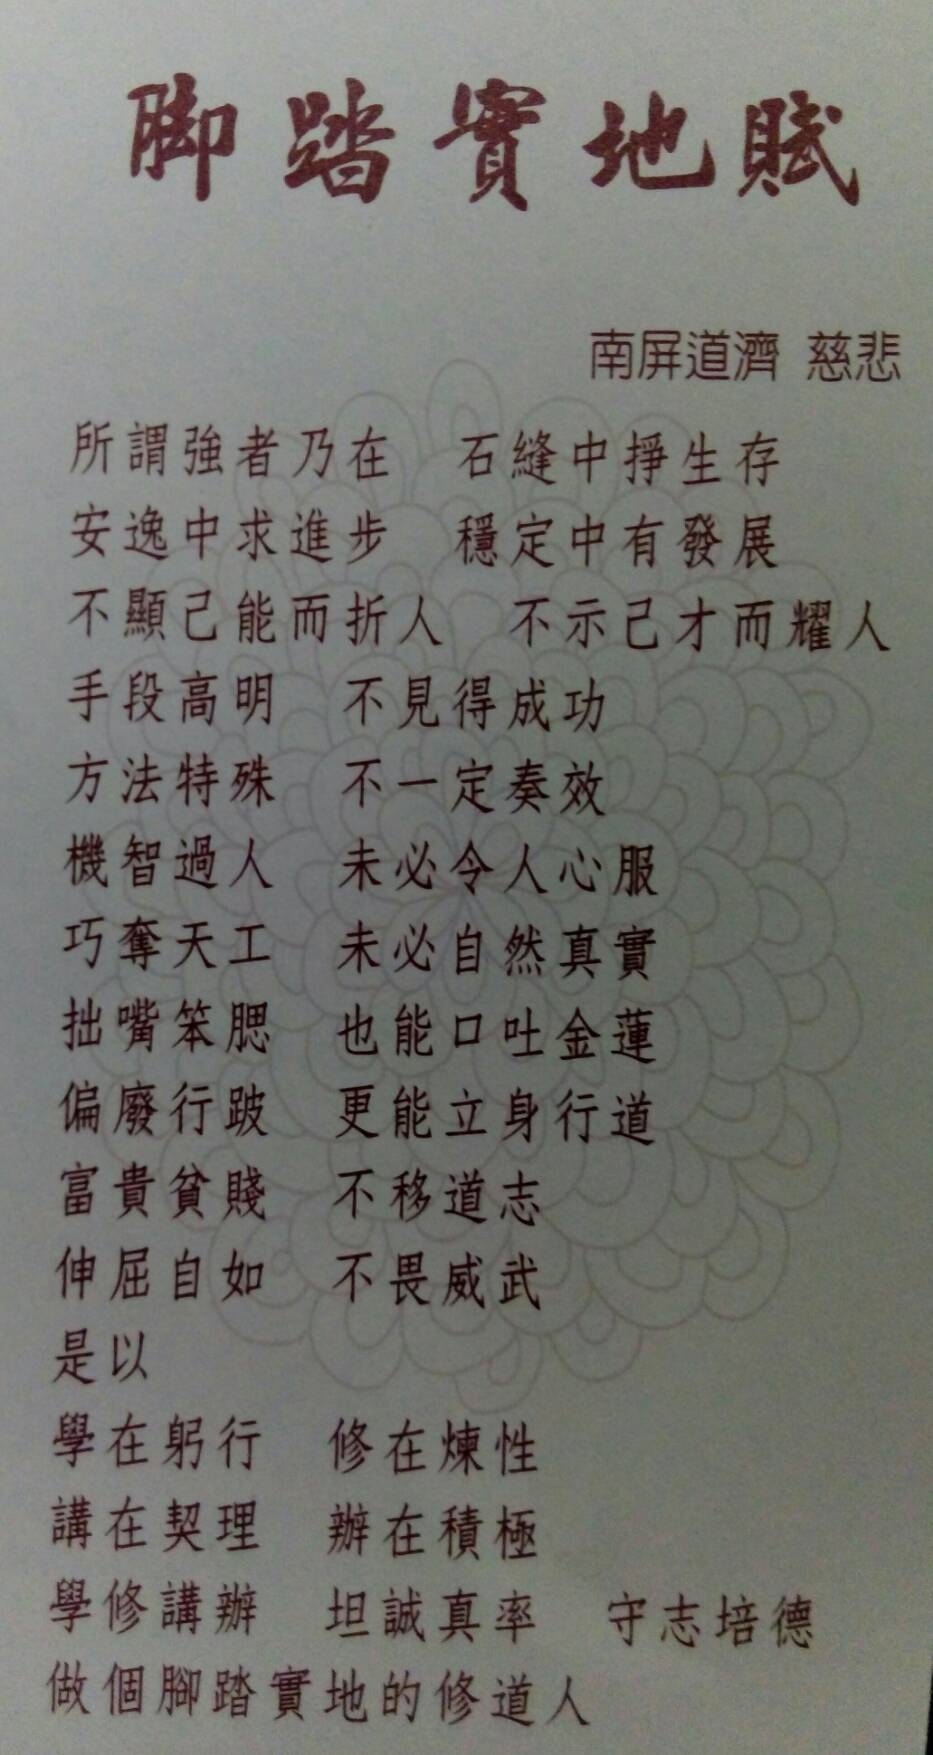 脚踏實地賦
南屏道濟 慈悲
所謂強者乃在 石縫中掙生存
安逸中求進步 穩定中有發展
不顯己能而折人 不示己才而耀人
手段高明 不見得成功
方法特殊 不一定奏效
機智過人 未必令人心服
巧奪天工 未必自然真實
拙嘴笨腮 也能口吐金蓮
偏廢行跛 更能立身行道
富貴貧賤 不移道志
伸屈自如 不畏威武
是以
學在躬行 修在煉性
講在契理 辦在積極
學修講辦 坦誠真率 守志培德
做個腳踏實地的修道人